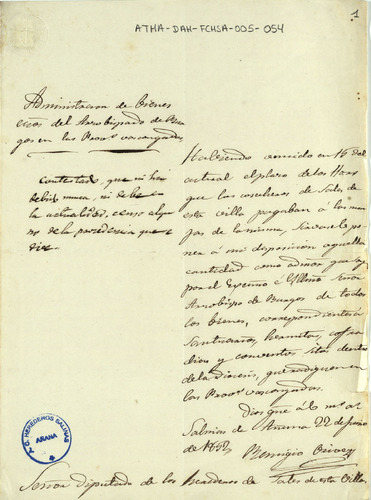 ATHA-DAH-FCHSA-005-054
1
Administracion de bienes
ecos del Arzobispado de Bur
gos en las Provs vascongadas
Contestado, que ni han
debido nunca, ni deben
la actualidad, censo algu
no de la procedencia que
dice
Habiendo vencido en 16 del
actual el plazo de los
que los cosecheros de Sales de
esta villa pagaban á las mon
jas de la misma, sirvase po
ner á mi disposicion aquella
cantidad como admor que soy
por el Excmo é Yllmo Señor
Arzobispo de Burgos de todos
los bienes, correspondientes á
Santuarios, hermitas, cofra
dias y conventos sitos dentro
de la Diocesis, que radiquen en
las Provs vascongadas.
Dios gue á V. ms as
Salinas de Añana 22 de Junio
de 1852 Remigio
Señor Diputado de los Herederos de Sales de esta Villa
P. G. HEREDEROS SALINAS
AÑANA